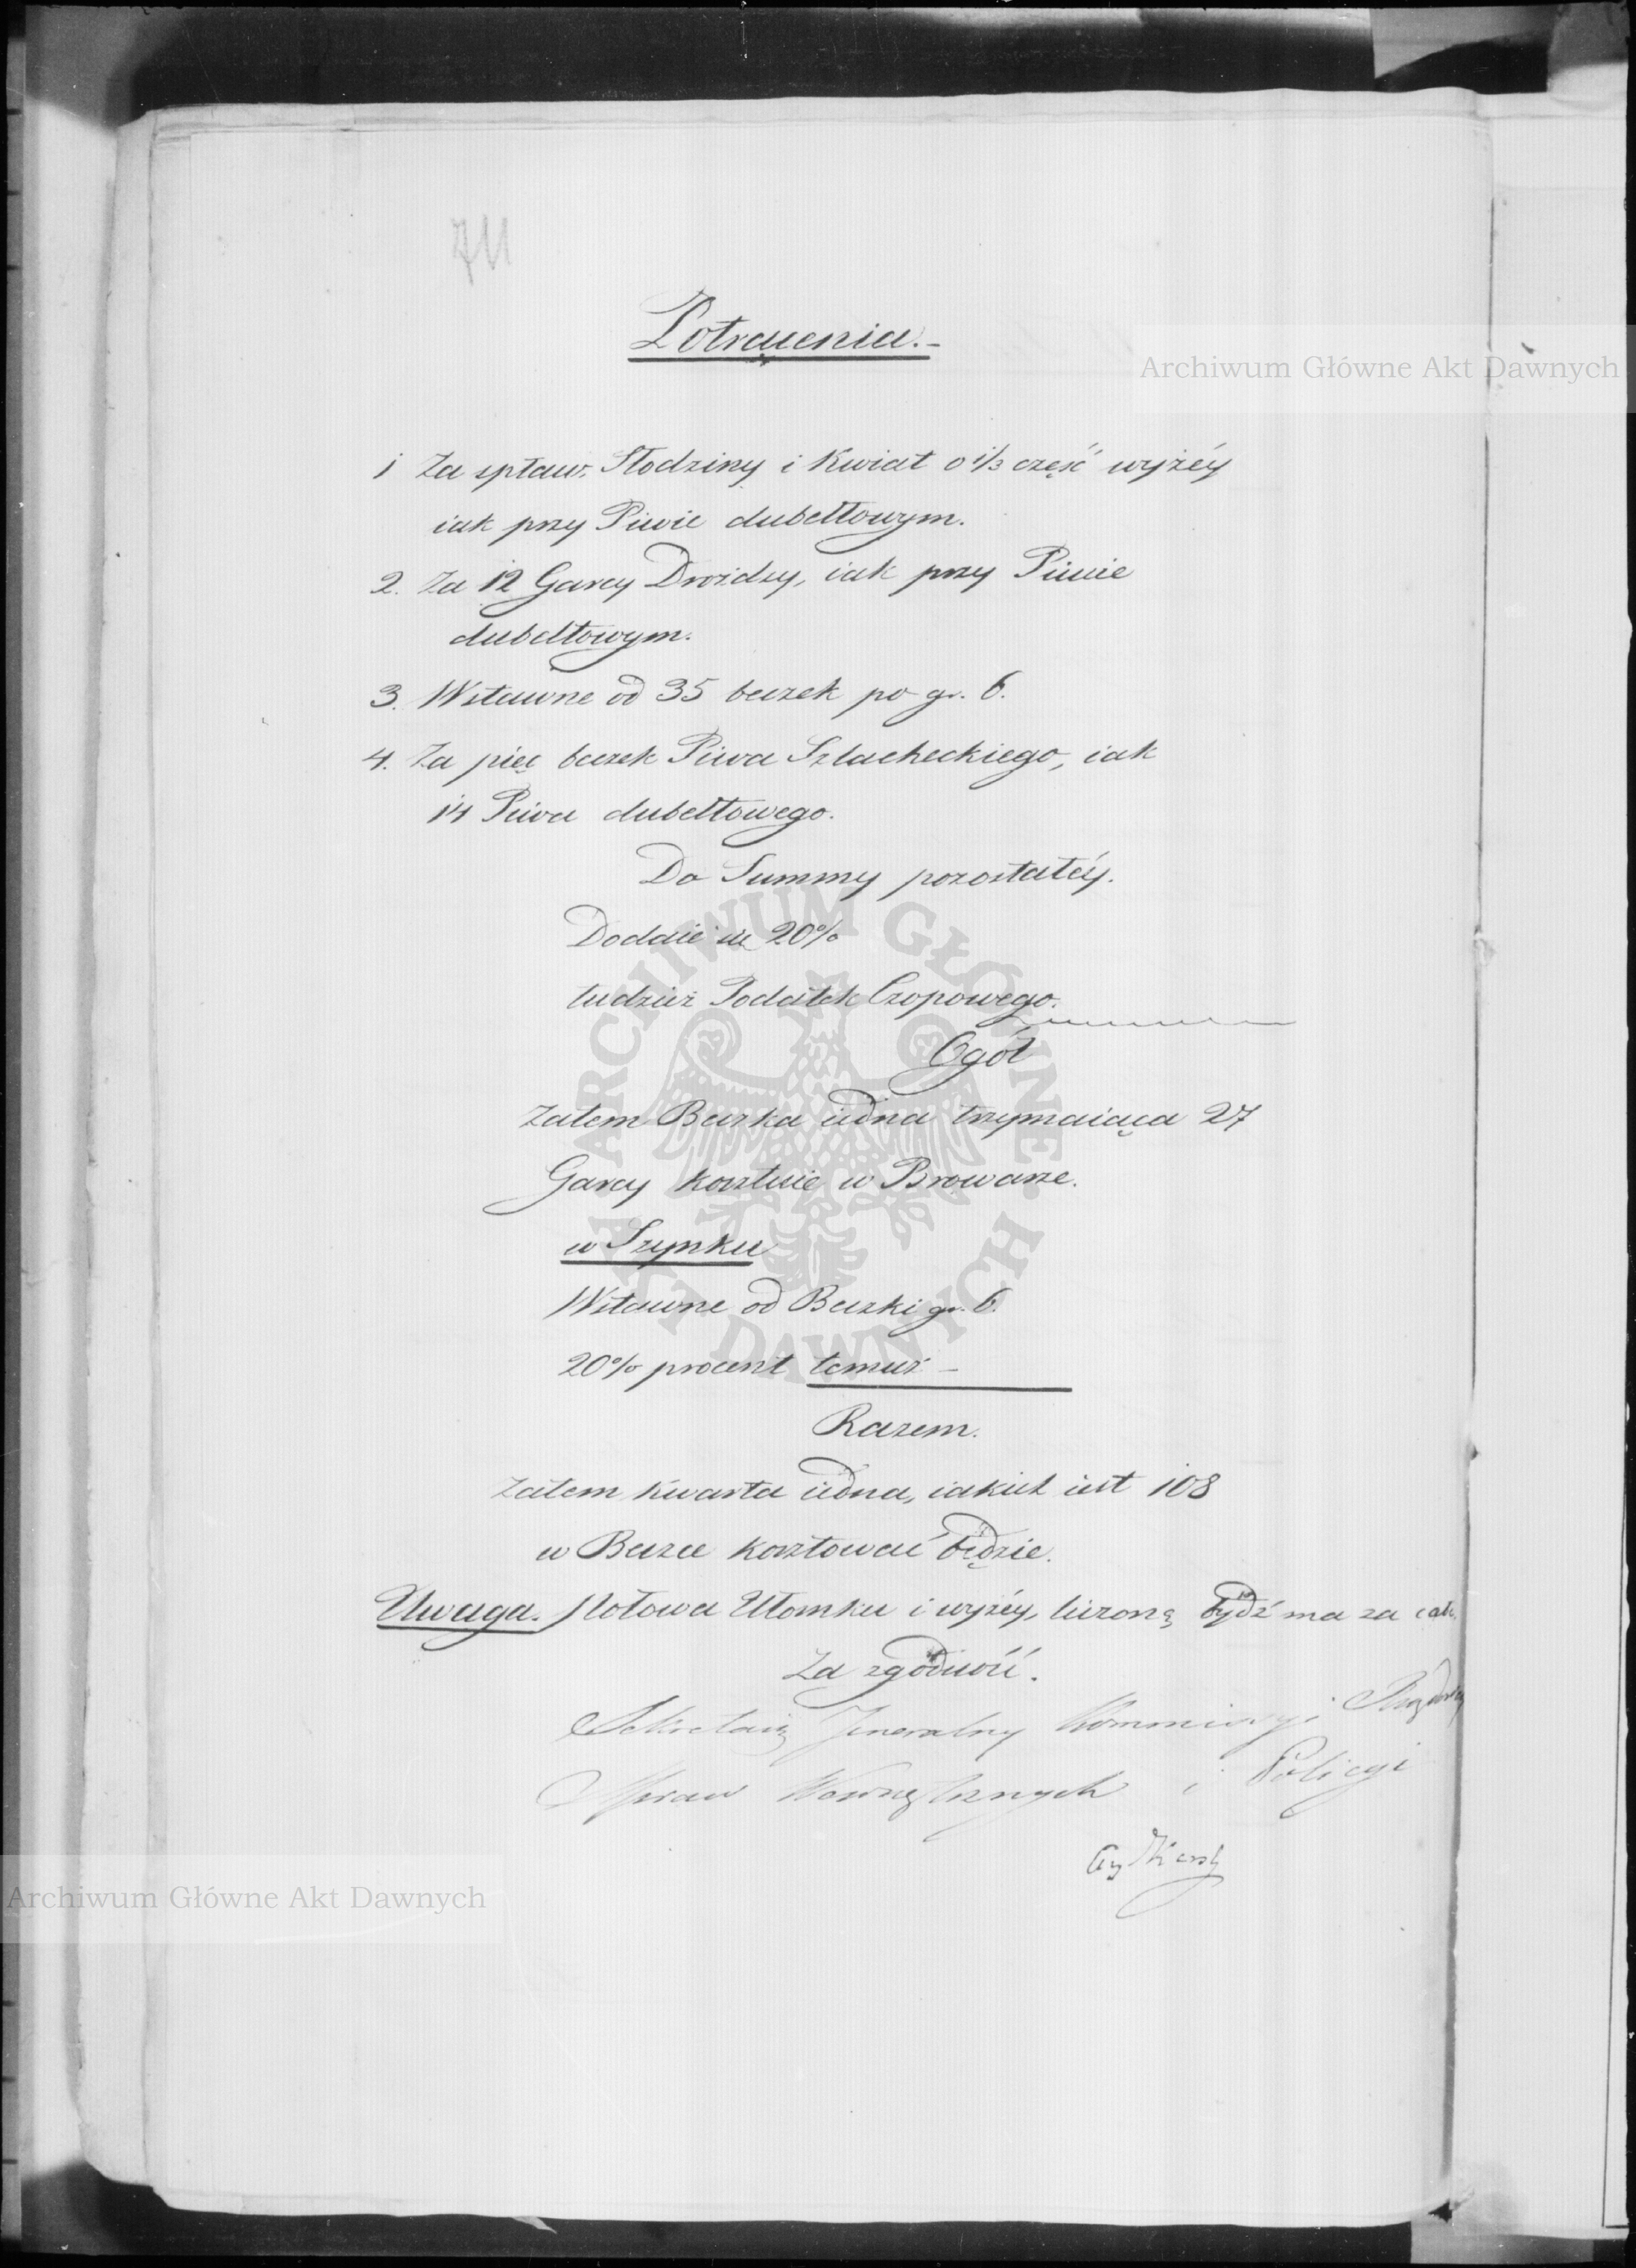 711
Potrącenia.-
Archiwum Główne Akt Dawnych
1 Za spław, Słodziny i Kwiat o 1/3 część wyżéy
iak przy Piwie dubeltowym.
2. Za 12 Garcy Drożdzy, iak przy Piwie
dubeltowym.
3. Wstawne od 35 beczek po gr. 6.
4. Za pięć beczek Piwa Szlacheckiego, iak
14 Piwa dubeltowego.
Do Summy pozostałéy.
Dodaie się 20%
tudzież Podatek Czopowego.
Ogół
Zatem Beczka iedna trzymaiąca 27
Garcy kosztuie w Browarze.
w Szynku
Wstawne od Beczki gr. 6.
20% procent temuż -
Razem.
Zatem kwarta iedna, iakich iest 108
w Beczce kosztować będzie.
Uwaga. Połowa Ułomku i wyżéy, liczoną bydź ma za cał.
Za zgodność.
Sekretarz Jeneralny Kommissyi Rządowéy
Spraw Wewnętrznych i Policyi
Archiwum Główne Akt Dawnych
ARCHIWUM GŁÓWNE AKT DAWNYCH